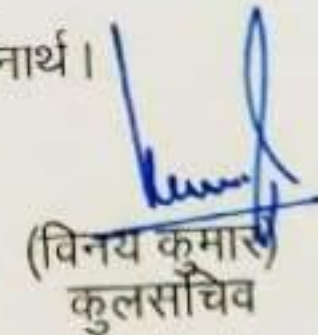 नार्थ।
(विनय कुमार)
कुलसचिव